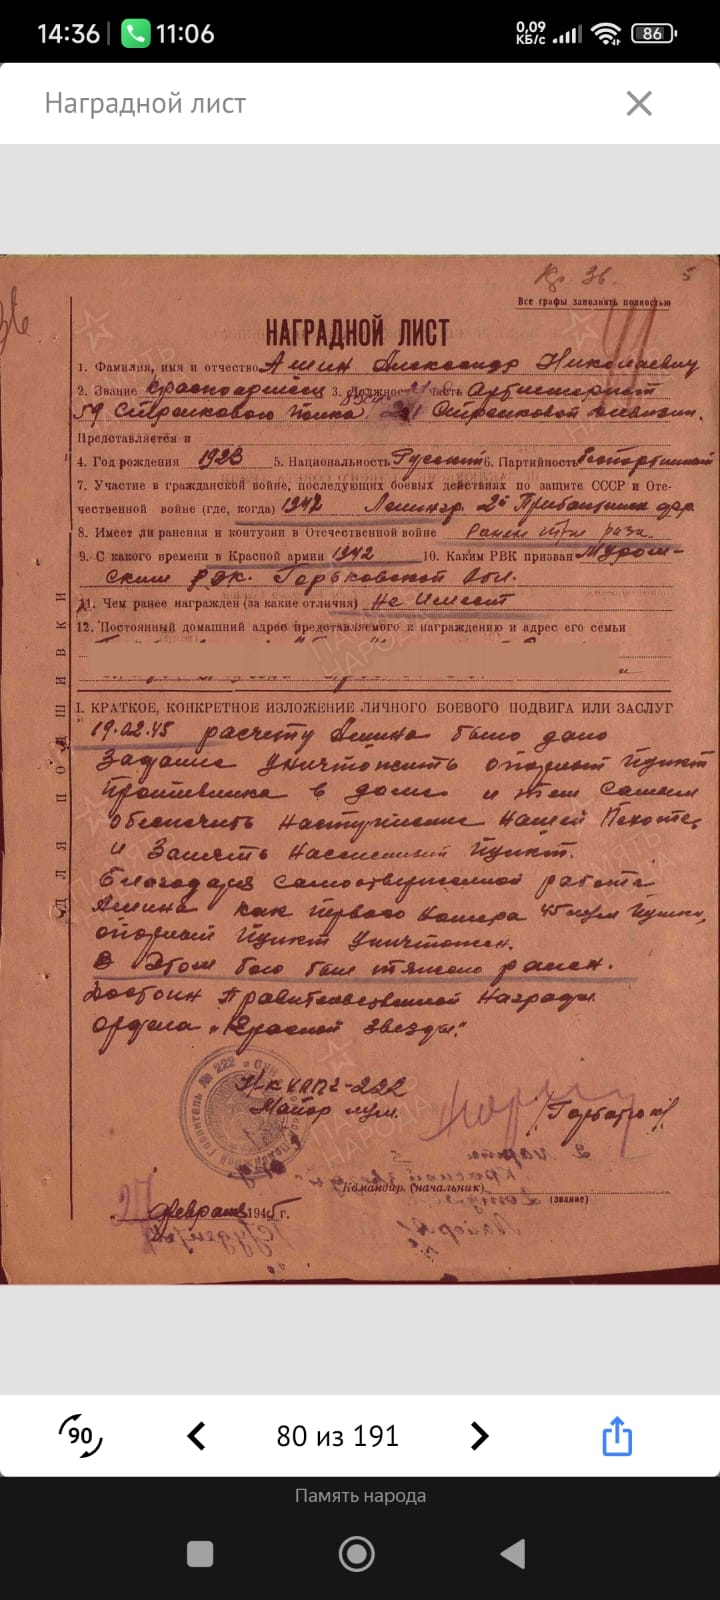 14:36 11:06 0,09 КБ/с 86
Наградной лист
Кр. Зв. 5
Все графы заполнять полностью
НАГРАДНОЙ ЛИСТ
1. Фамилия, имя и отчество Ашин Александр Николаевич
2. Звание Красноармеец 3. Должность, часть Артиллерист
59 Стрелкового полка Стрелковой дивизии.
Представляется к
4. Год рождения 1923 5. Национальность Русский 6. Партийность Беспартийный
7. Участие в гражданской войне, последующих боевых действиях по защите СССР и Оте-
чественной войне (где, когда) 1942 Ленингр. 2й Прибалтийск фр.
8. Имеет ли ранения и контузии в Отечественной войне Ранен три раза.
9. С какого времени в Красной армии 1942 10. Каким РВК призван Муром-
ским РВК. Горьковской обл.
11. Чем ранее награжден (за какие отличия) Не имеет
12. Постоянный домашний адрес представляемого к награждению и адрес его семьи
ДЛЯ ПОДШИВКИ
I. КРАТКОЕ, КОНКРЕТНОЕ ИЗЛОЖЕНИЕ ЛИЧНОГО БОЕВОГО ПОДВИГА ИЛИ ЗАСЛУГ
19.02.45 расчету Ашина было дано
Задание уничтожить опорный пункт
Противника в доме и тем самым
обеспечить наступление нашей Пехоте,
и Занять населенный пункт.
Благодаря самоотверженной работе
Ашина как первого номера 45 мм Пушки,
опорный пункт Уничтожен.
В Этом бою был тяжело ранен.
Достоин Правительственной Награды
ордена „Красной Звезды".
Н-к ХППГ-222
Майор м/с. /Горбатюк/
Госпиталь № 222
Командир (начальник)
(звание)
27 февраля 1945 г.
90 80 из 191
Память народа